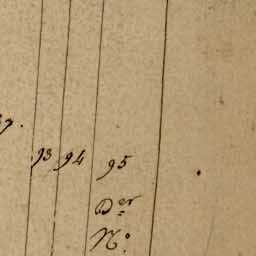 93 94 95
D.er
N.o